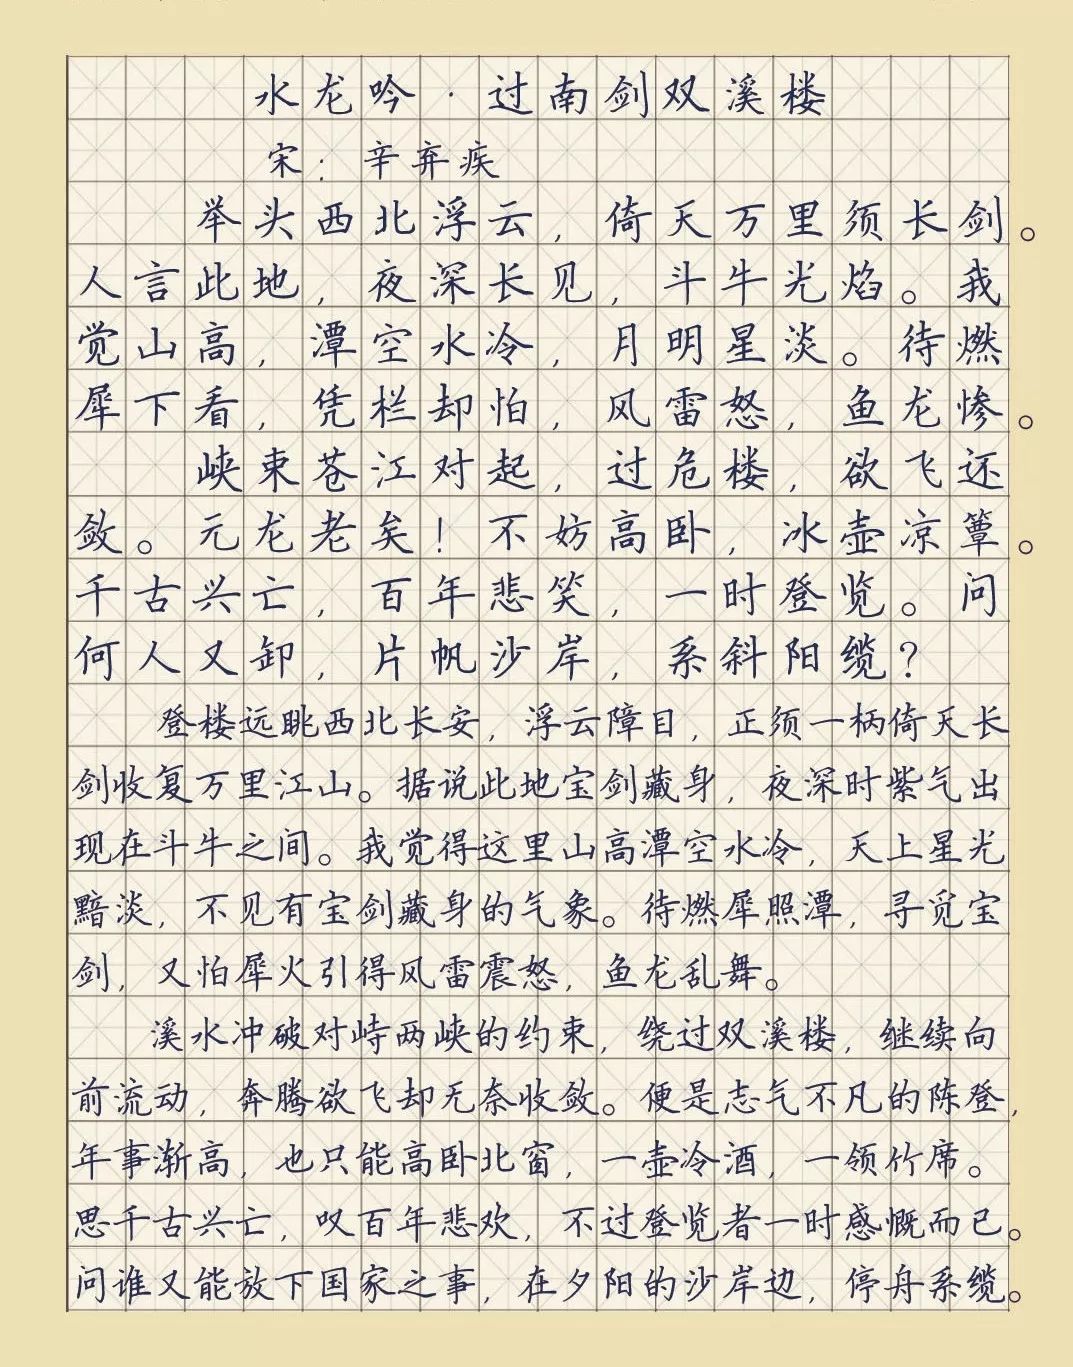 水龙吟·过南剑双溪楼
宋：辛弃疾
举头西北浮云，倚天万里须长剑。
人言此地，夜深长见，斗牛光焰。我
觉山高，潭空水冷，月明星淡。待燃
犀下看，凭栏却怕，风雷怒，鱼龙惨。
峡束苍江对起，过危楼，欲飞还
敛。元龙老矣！不妨高卧，冰壶凉簟。
千古兴亡，百年悲笑，一时登览。问
何人又卸，片帆沙岸，系斜阳缆？
登楼远眺西北长安，浮云障目，正须一柄倚天长
剑收复万里江山。据说此地宝剑藏身，夜深时紫气出
现在斗牛之间。我觉得这里山高潭空水冷，天上星光
黯淡，不见有宝剑藏身的气象。待燃犀照潭，寻觅宝
剑，又怕犀火引得风雷震怒，鱼龙乱舞。
溪水冲破对峙两峡的约束，绕过双溪楼，继续向
前流动，奔腾欲飞却无奈收敛。便是志气不凡的陈登，
年事渐高，也只能高卧北窗，一壶冷酒，一领竹席。
思千古兴亡，叹百年悲欢，不过登览者一时感慨而已。
问谁又能放下国家之事，在夕阳的沙岸边，停舟系缆。